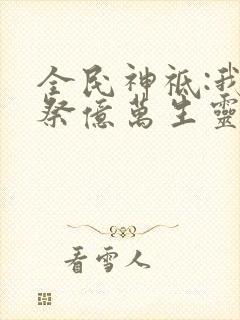 全民神祗:我
祭億萬生靈
看雪人